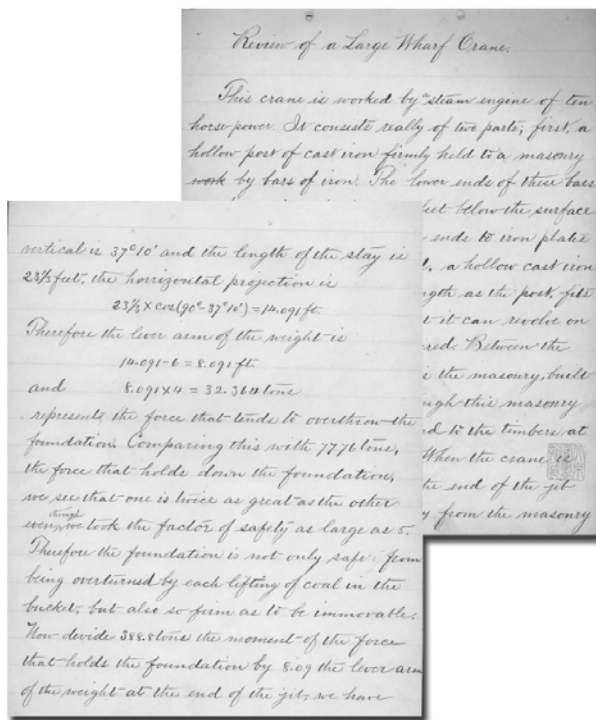 Review of a Large Wharf Crane.
This crane is worked by a steam engine of ten
horse power. It consists really of two parts; first, a
hollow post of cast iron firmly held to a masonry
work by bars of iron. The lower ends of these bars
feet below the surface
ends to iron plates
a hollow cast iron
as the post, fits
it can revolve on
Between the
the masonry, built
this masonry
to the timbers at
When the crane is
the end of the jib
from the masonry
vertical is 37°10' and the length of the stay is
23⅓ feet, the horrizontal projection is
23⅓ × cos (90° - 37°10') = 14.091 ft.
Therefore the lever arm of the weight is
14.091 - 6 = 8.091 ft.
and 8.091 × 4 = 32.364 tons
represents the force that tends to overthrow the
foundation. Comparing this with 77.76 tons,
the force that holds down the foundation,
we see that one is twice as great as the other
even though we took the factor of safety as large as 5.
Therefore the foundation is not only safe from
being overturned by each lifting of coal in the
bucket, but also so firm as to be immovable.
Now divide 388.8 tons the moment of the force
that holds the foundation by 8.09 the lever arm
of the weight at the end of the jib, we have